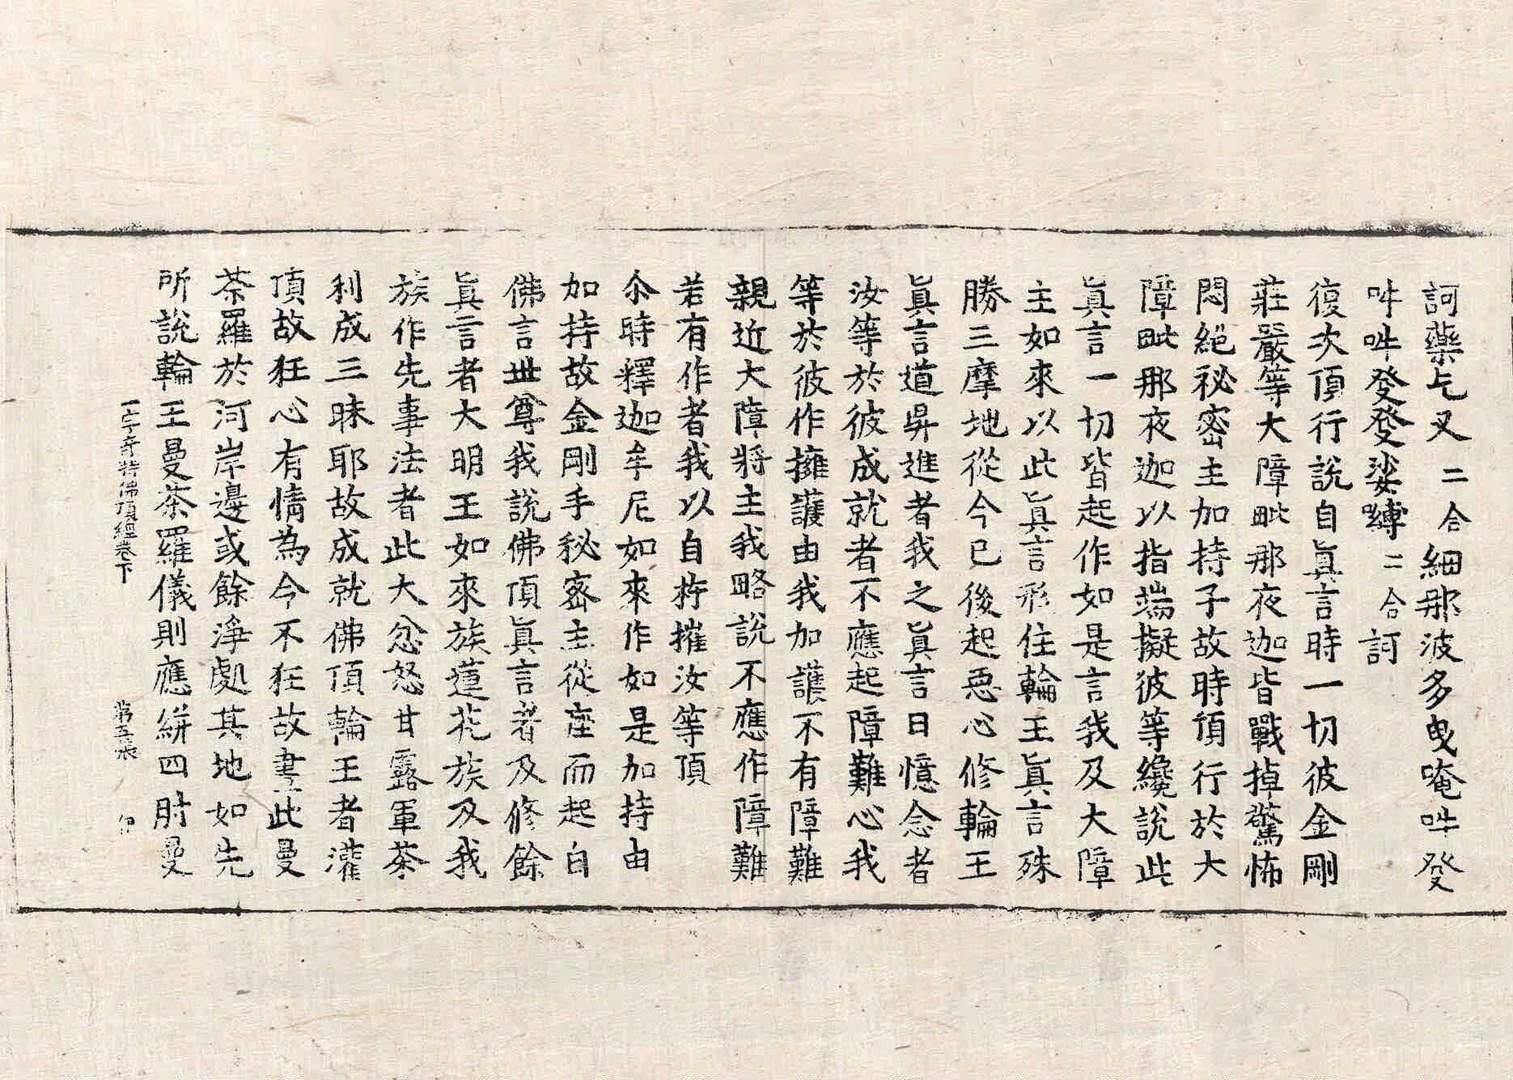 訶藥乞叉二合細那波多曳唵吽發
吽吽發發娑嚩二合訶
復次頂行說自眞言時一切彼金剛
莊嚴等大障毗那夜迦皆戰掉驚怖
悶絕祕密主加持子故時頂行於大
障毗那夜迦以指端擬彼等纔說此
眞言一切皆起作如是言我及大障
主如來以此眞言形住輪王眞言殊
勝三摩地從今已後起惡心修輪王
眞言道昇進者我之眞言日憶念者
汝等於彼成就者不應起障難心我
等於彼作擁護由我加護不有障難
親近大障將主我略說不應作障難
若有作者我以自杵摧汝等頂
尒時釋迦牟尼如來作如是加持由
加持故金剛手秘密主從座而起白
佛言世尊我說佛頂眞言者及修餘
眞言者大明王如來族蓮花族及我
族作先事法者此大忿怒甘露軍茶
利成三昧耶故成就佛頂輪王者灌
頂故狂心有情為今不狂故畫此曼
茶羅於河岸邊或餘淨處其地如先
所說輪王曼茶羅儀則應絣四肘曼
一字奇特佛頂經卷下 第五張